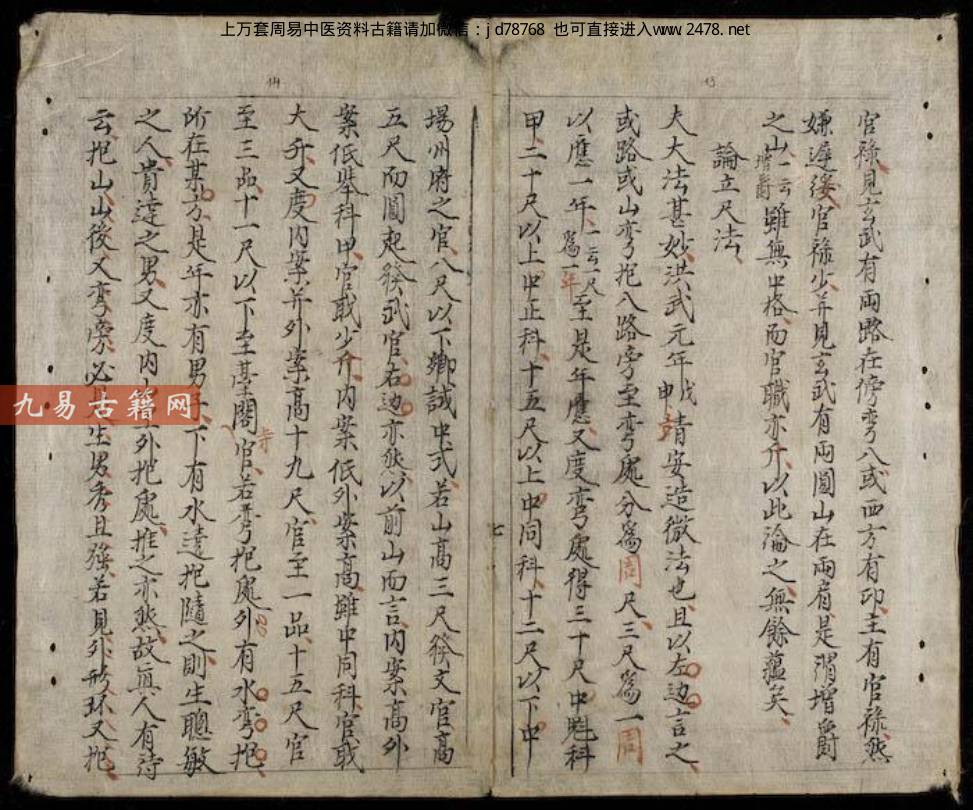 上万套周易中医资料古籍请加微信：jd78768 也可直接进入www.2478.net
13
官祿見玄武有兩路在傍彎八或西方有印主有官祿然
嫌遲緩官祿少并見玄武有兩圓山在兩肩是謂增爵
之山一云增爵雖無中格而官職亦升以此論之無餘蘊矣
論立尺法
夫大法甚妙洪武元年戊申靖安造微法也且以左边言之
或路或山弯抱八路旁至弯處分爲周尺三尺爲一周
以應一年一云一尺爲一年至是年應又度弯處得三十尺中魁科
甲二十尺以上中正科十五尺以上中同科十二尺以下中
七
14
場州府之官八尺以下鄉試中式若山高三尺發文官高
五尺而圓起發武官右边亦然以前山而言内案高外
案低舉科甲官或少升内案低外案高雖中同科官或
大升又度内案并外案高十九尺官至一品十五尺官
至三品十一尺以下至基閣寺官若弯抱處外有水弯抱
所在某方是年亦有男子下有水遠抱隨之則生聰敏
之人貴達之男又度内外抱處推之亦然故眞人有詩
云抱山山後又弯旁必生男秀且強若見外形环又抱
九易古籍网